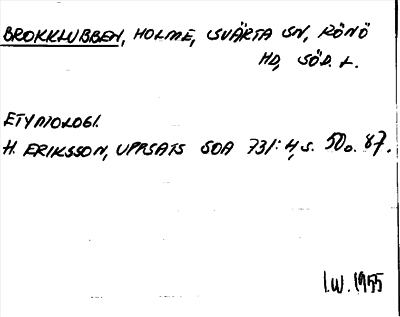 BROKKLUBBEN, HOLME, SVÄRTA SN, RÖNÖ
HD, SÖD. L.
ETYMOLOGI.
H. ERIKSSON, UPPSATS SOA 731:4, S. 50 o. 87.
I.W. 1955